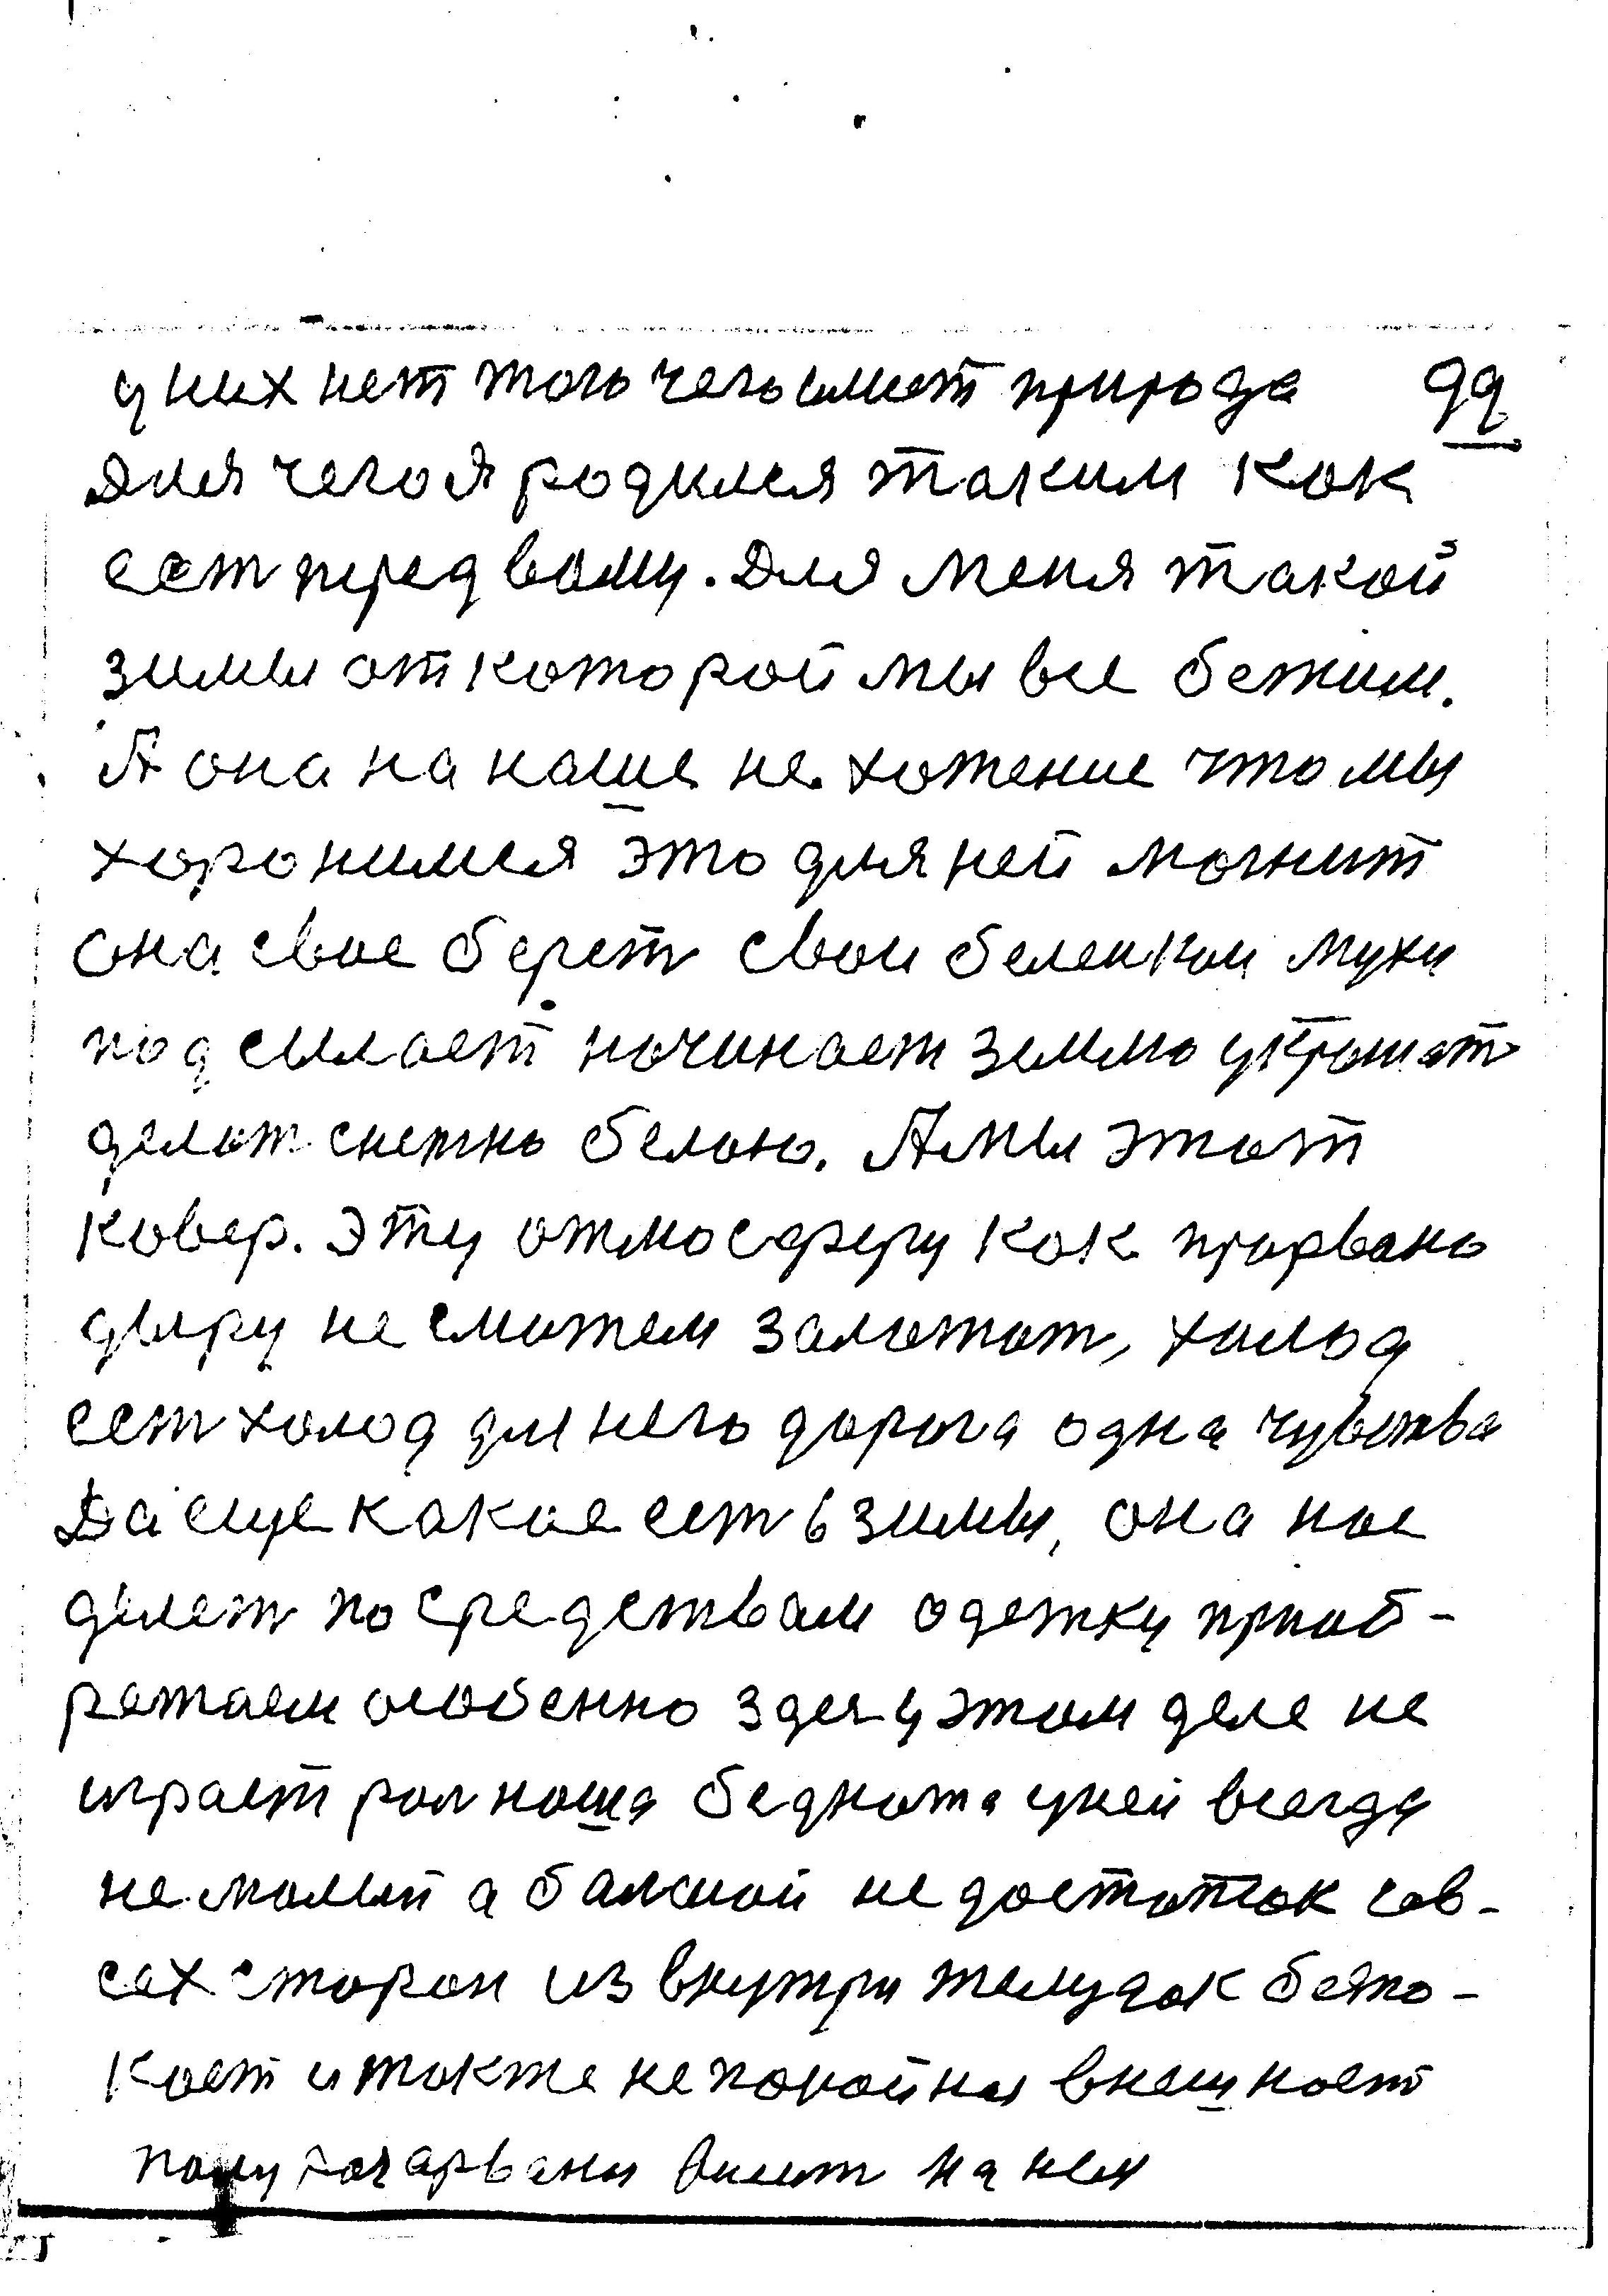 у них нет того чего имеет природа 99
для чего я родился таким как
ест перед вами. Для меня такой
зимы от которой мы все бежим.
А она на наше не хотение что мы
хоронимся это для ней могнит
она свое берет свои беленкои мухи
подсылает начинает землю украшат
делат снежно белою. А мы этот
ковер. Эту атмосферу как прорвано
дыру не сможем залатат, холод
ест холод для него дорога одна чувства
Да еще какие ест в зимы, она нас
делет по средствам одежку приоб-
ретаем особенно здес у этом деле не
играет рол наша беднота у ней всегда
не малый а балшой не достаток сов-
сех сторон из внутри желудок беспо-
коет и также не покойная внешност
полу висит на ней